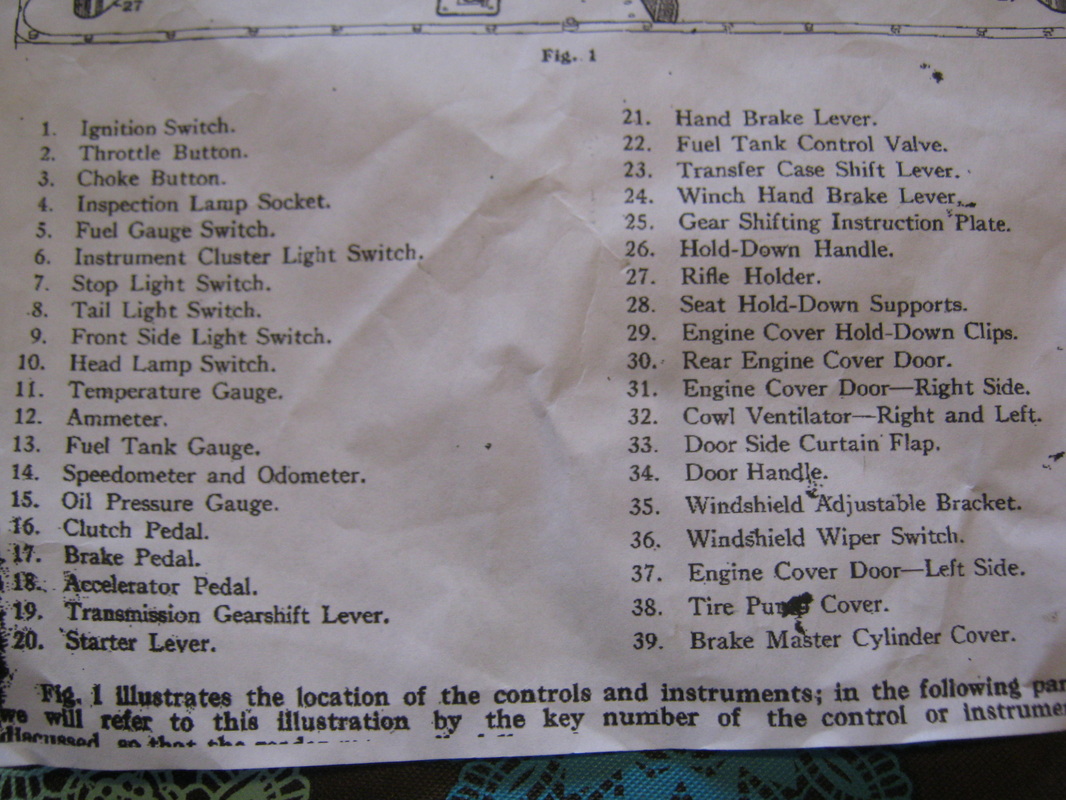 27
Fig. 1
1. Ignition Switch.
2. Throttle Button.
3. Choke Button.
4. Inspection Lamp Socket.
5. Fuel Gauge Switch.
6. Instrument Cluster Light Switch.
7. Stop Light Switch.
8. Tail Light Switch.
9. Front Side Light Switch.
10. Head Lamp Switch.
11. Temperature Gauge.
12. Ammeter.
13. Fuel Tank Gauge.
14. Speedometer and Odometer.
15. Oil Pressure Gauge.
16. Clutch Pedal.
17. Brake Pedal.
18. Accelerator Pedal.
19. Transmission Gearshift Lever.
20. Starter Lever.
21. Hand Brake Lever.
22. Fuel Tank Control Valve.
23. Transfer Case Shift Lever.
24. Winch Hand Brake Lever.
25. Gear Shifting Instruction Plate.
26. Hold-Down Handle.
27. Rifle Holder.
28. Seat Hold-Down Supports.
29. Engine Cover Hold-Down Clips.
30. Rear Engine Cover Door.
31. Engine Cover Door—Right Side.
32. Cowl Ventilator—Right and Left.
33. Door Side Curtain Flap.
34. Door Handle.
35. Windshield Adjustable Bracket.
36. Windshield Wiper Switch.
37. Engine Cover Door—Left Side.
38. Tire Pump Cover.
39. Brake Master Cylinder Cover.
Fig. 1 illustrates the location of the controls and instruments; in the following par
we will refer to this illustration by the key number of the control or instrume
discussed so that the reader